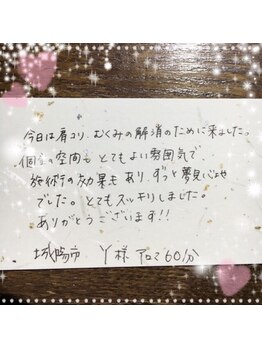 今日は肩コリ、むくみの解消のために来ました。
個室の空間もとてもよい雰囲気で
施術の効果もあり、ずっと夢見心地
でした。とてもスッキリしました。
ありがとうございます!!
城陽市 Y様 アロマ60分